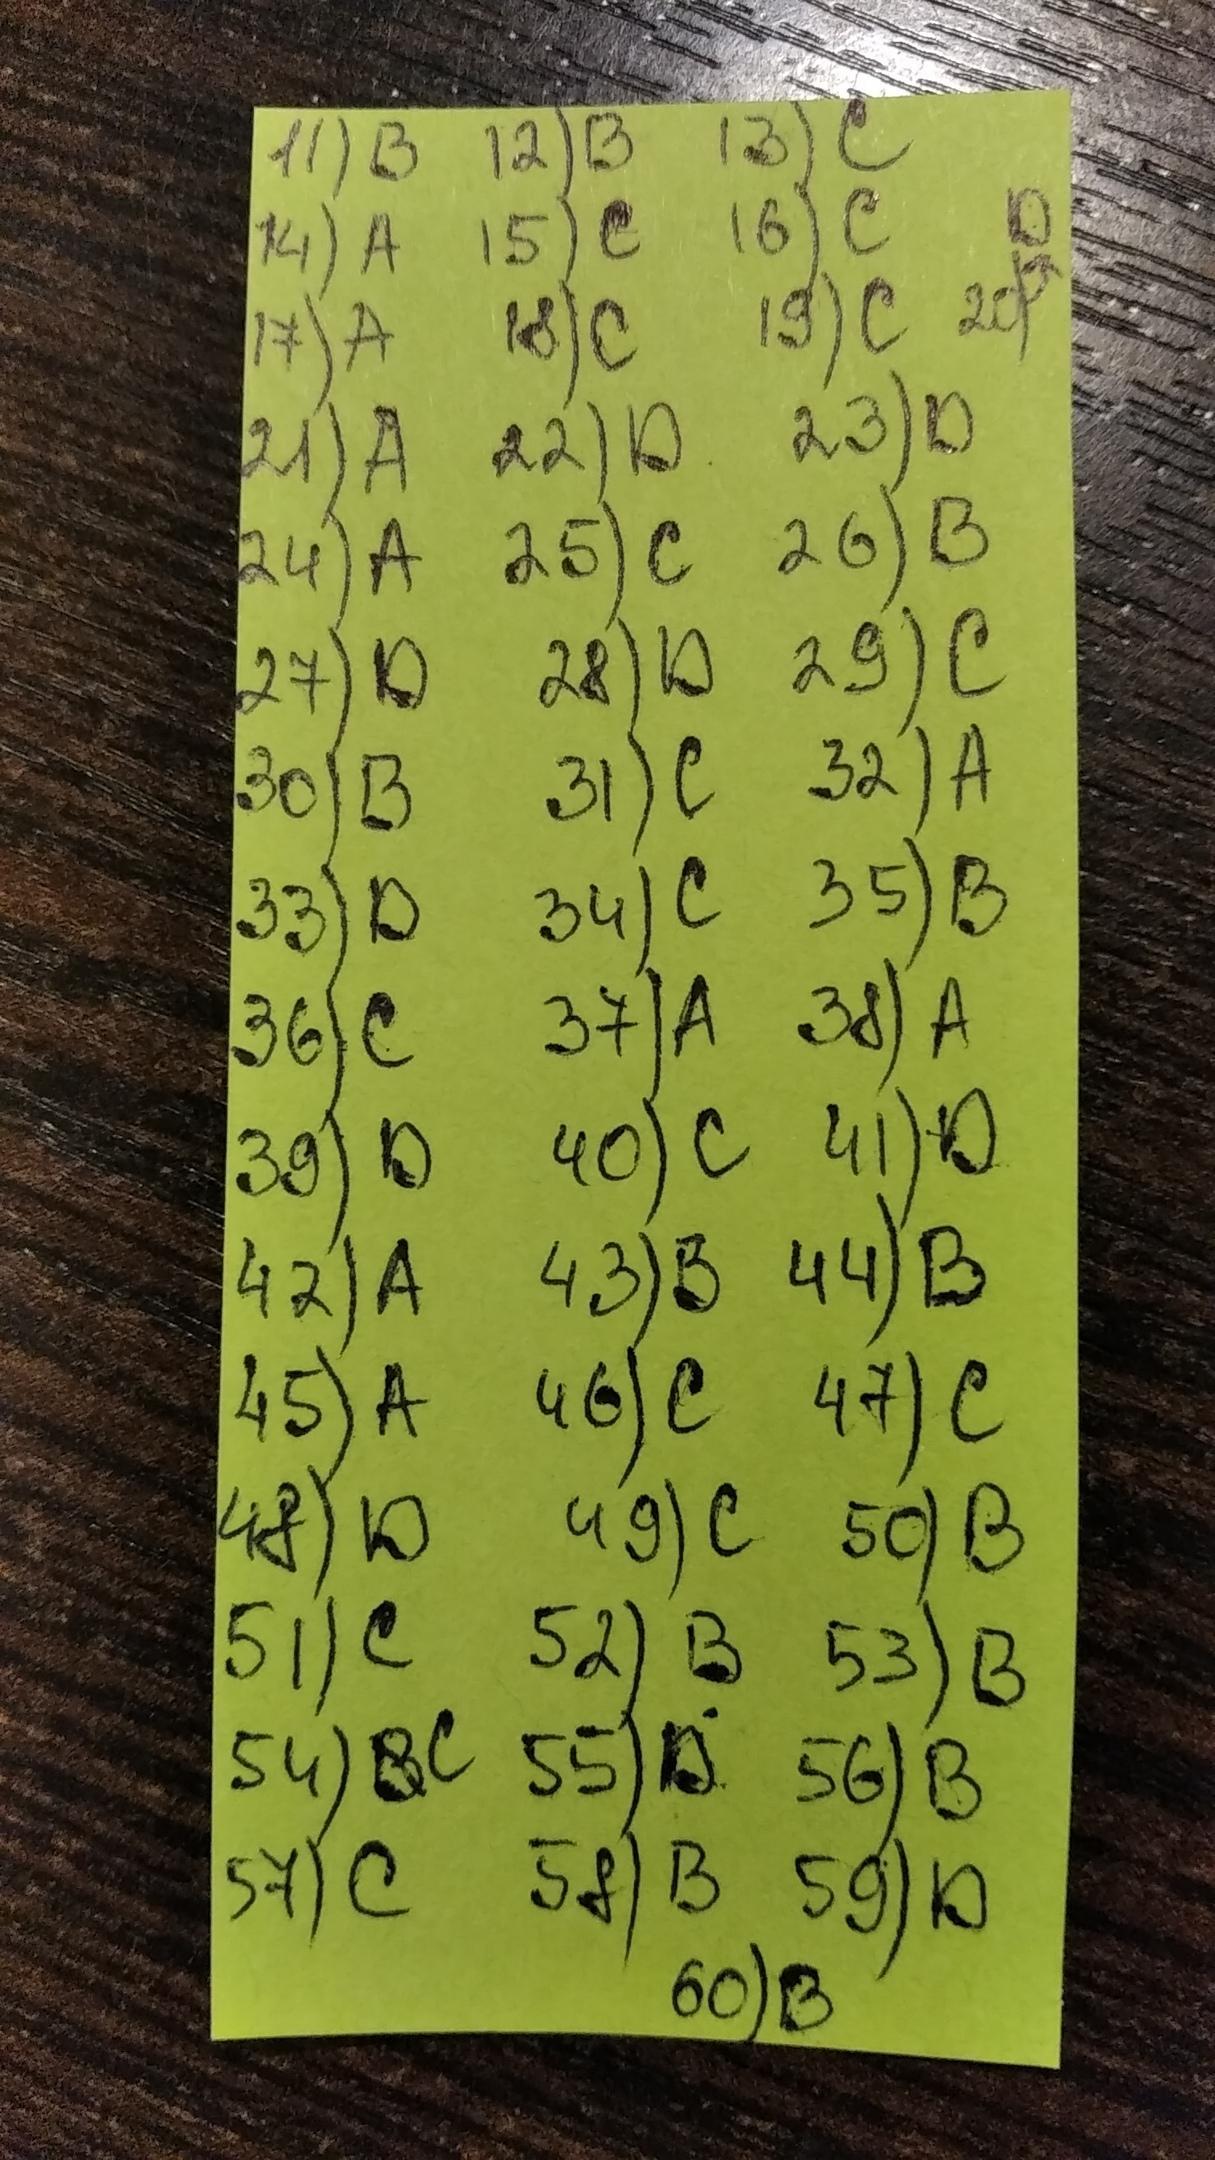 11) B 12) B 13) C
14) A 15) C 16) C D
17) A 18) C 19) C 20)
21) A 22) D 23) D
24) A 25) C 26) B
27) D 28) D 29) C
30) B 31) C 32) A
33) D 34) C 35) B
36) C 37) A 38) A
39) D 40) C 41) D
42) A 43) B 44) B
45) A 46) C 47) C
48) D 49) C 50) B
51) C 52) B 53) B
54) C 55) D 56) B
57) C 58) B 59) D
60) B